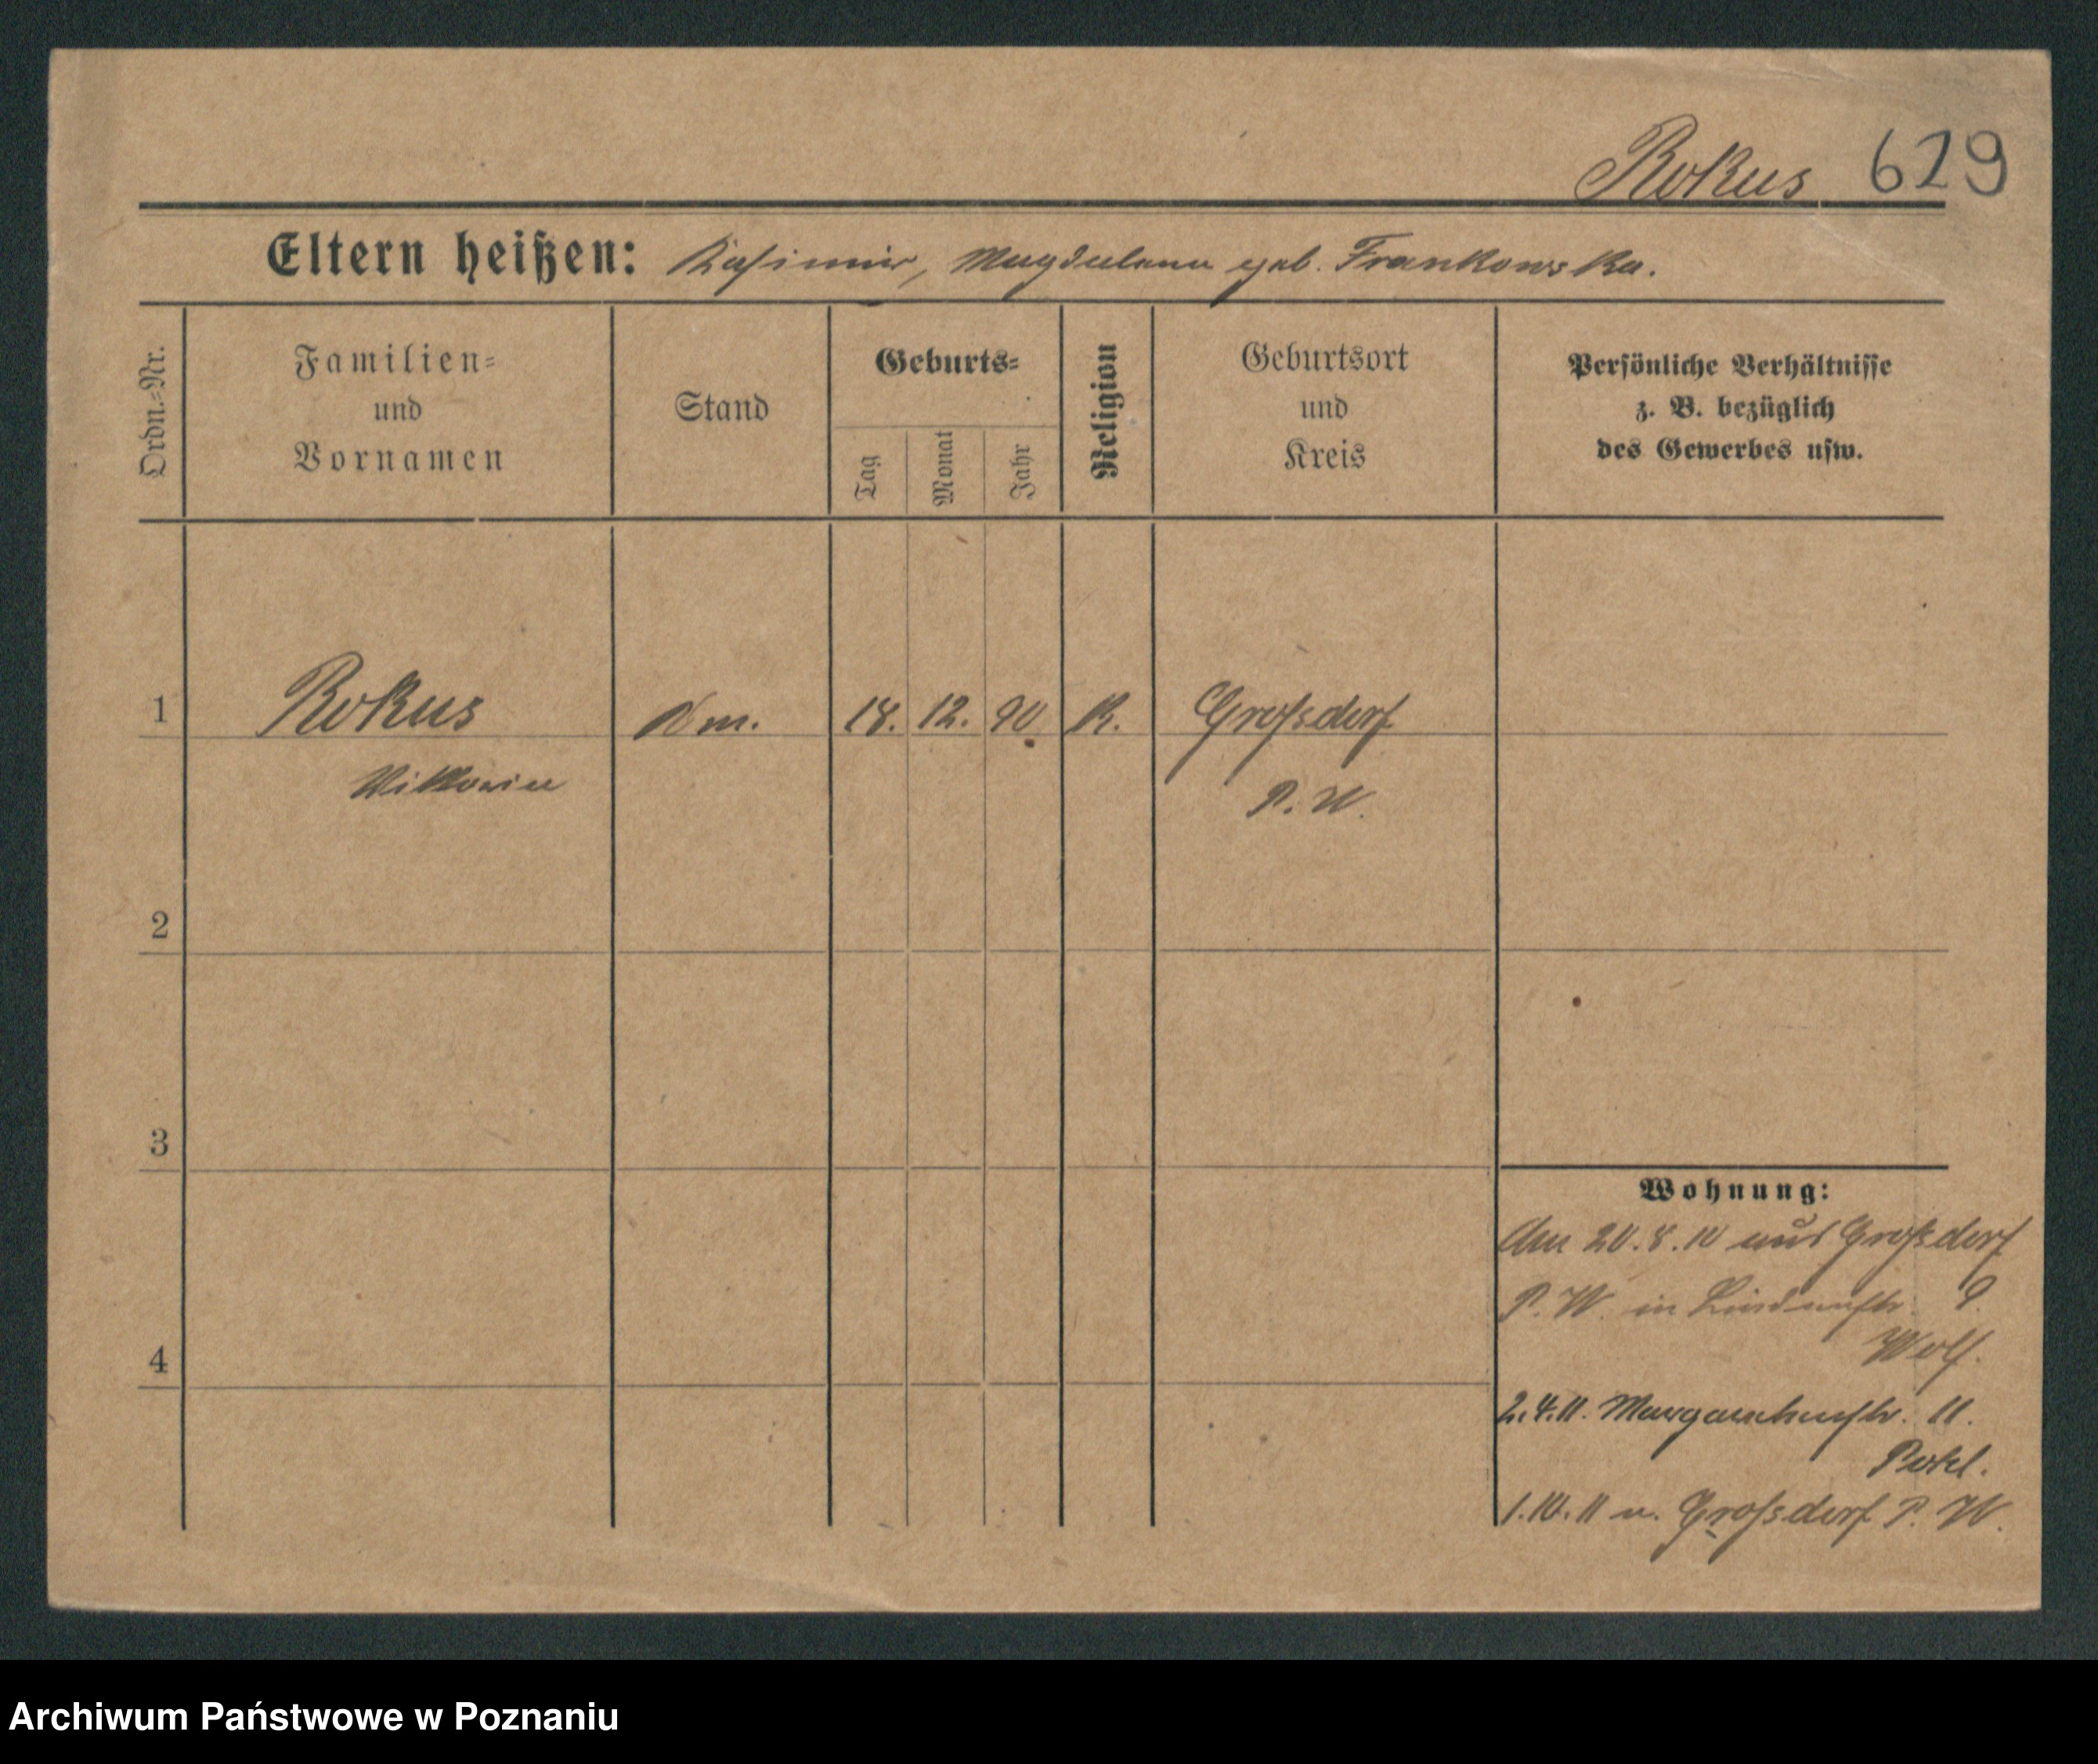 Rokus 629
Eltern heißen: Kasimir, Magdalena geb. Frankowska.
Ordn.=Nr.
Familien=
und
Vornamen
Stand
Geburts=
Tag
Monat
Jahr
Religion
Geburtsort
und
Kreis
Persönliche Verhältnisse
z. B. bezüglich
des Gewerbes usw.
1 Rokus 18. 12. 90 K. Grossdorf
Viktoria P. W.
2
3
4
Wohnung:
Am 20.8.10 aus Großdorf
P. W. in Lindenstr. 9.
Wolf.
2.4.11. 11.
1.10.11 n. Grossdorf P. W.
Archiwum Państwowe w Poznaniu